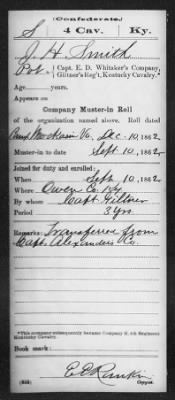 (Confederate.)
S 4 Cav. Ky.
J. H. Smith
Pvt., Capt. E. D. Whitaker's Company,
Giltner's Reg't, Kentucky Cavalry.*
Age years.
Appears on
Company Muster-in Roll
of the organization named above. Roll dated
Va, Dec. 10, 1862
Muster-in to date Sept 10, 1862
Joined for duty and enrolled:
When Sept. 10, 1862
Where Owen Co. Ky
By whom Capt. Giltner
Period 3 Yrs.
Remarks: Transferred from
Capt. Alexanders Co.
*This company subsequently became Company E, 4th Regiment
Kentucky Cavalry.
Book mark:
E E Rankin
Copyist.